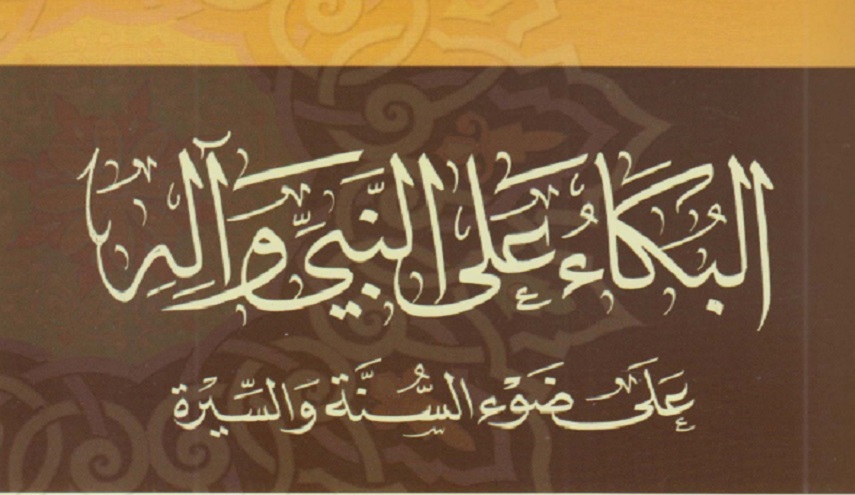 البُكَاءُ عَلى النَّبِيِّ وَآلِهِ
عَلَى ضَوْءِ السُّنَّة وَالسِّيْرة